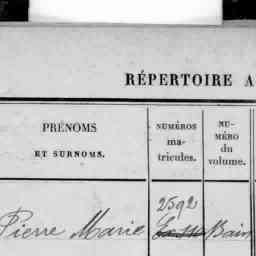 RÉPERTOIRE A
PRÉNOMS
ET SURNOMS.
NUMÉROS
ma-
tricules.
NU-
MÉRO
du
volume.
2592
Pierre Marie
Bain